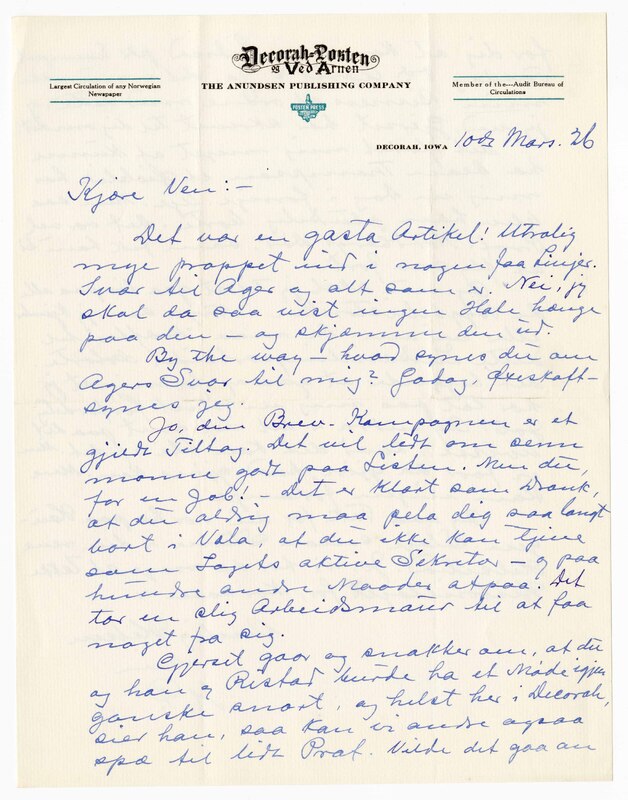 Decorah-Posten
og Ved Arnen
Largest Circulation of any Norwegian
Newspaper
THE ANUNDSEN PUBLISHING COMPANY
Member of the---Audit Bureau of
Circulations
POSTEN PRESS
DECORAH, IOWA 10de Mars. 26
Kjære Ven:-
Det var en gasta Artikel! Utrolig
mye proppet ind i nogen faa Linjer.
Svar til Ager og alt som er. Nei, jeg
skal da saa vist ingen Hale hænge
paa den - og skjæmme den ud.
By the way - hvad synes du om
Agers Svar til mig? Godag, Øxeskaft-
synes jeg.
Jo, den Brev-Kampagnen er et
gjildt Tiltag. Det vil lidt om senn
monne godt paa Listen. Men du,
for en Job! - Det er klart som Blæk,
at du aldrig maa pela deg saa langt
bort i Vola, at du ikke kan tjene
som Lagets aktive Sekretær - og paa
hundre andre Maader atpaa. Det
tar en slig Arbeidsmaur til at faa
noget fra sig.
Gjerset gaar og snakker om, at du
og han og Ristad burde ha et Møde igjen
ganske snart, og helst her i Decorah,
sier han, saa kan vi andre ogsaa
spæ til lidt Prat. Vilde det gaa an